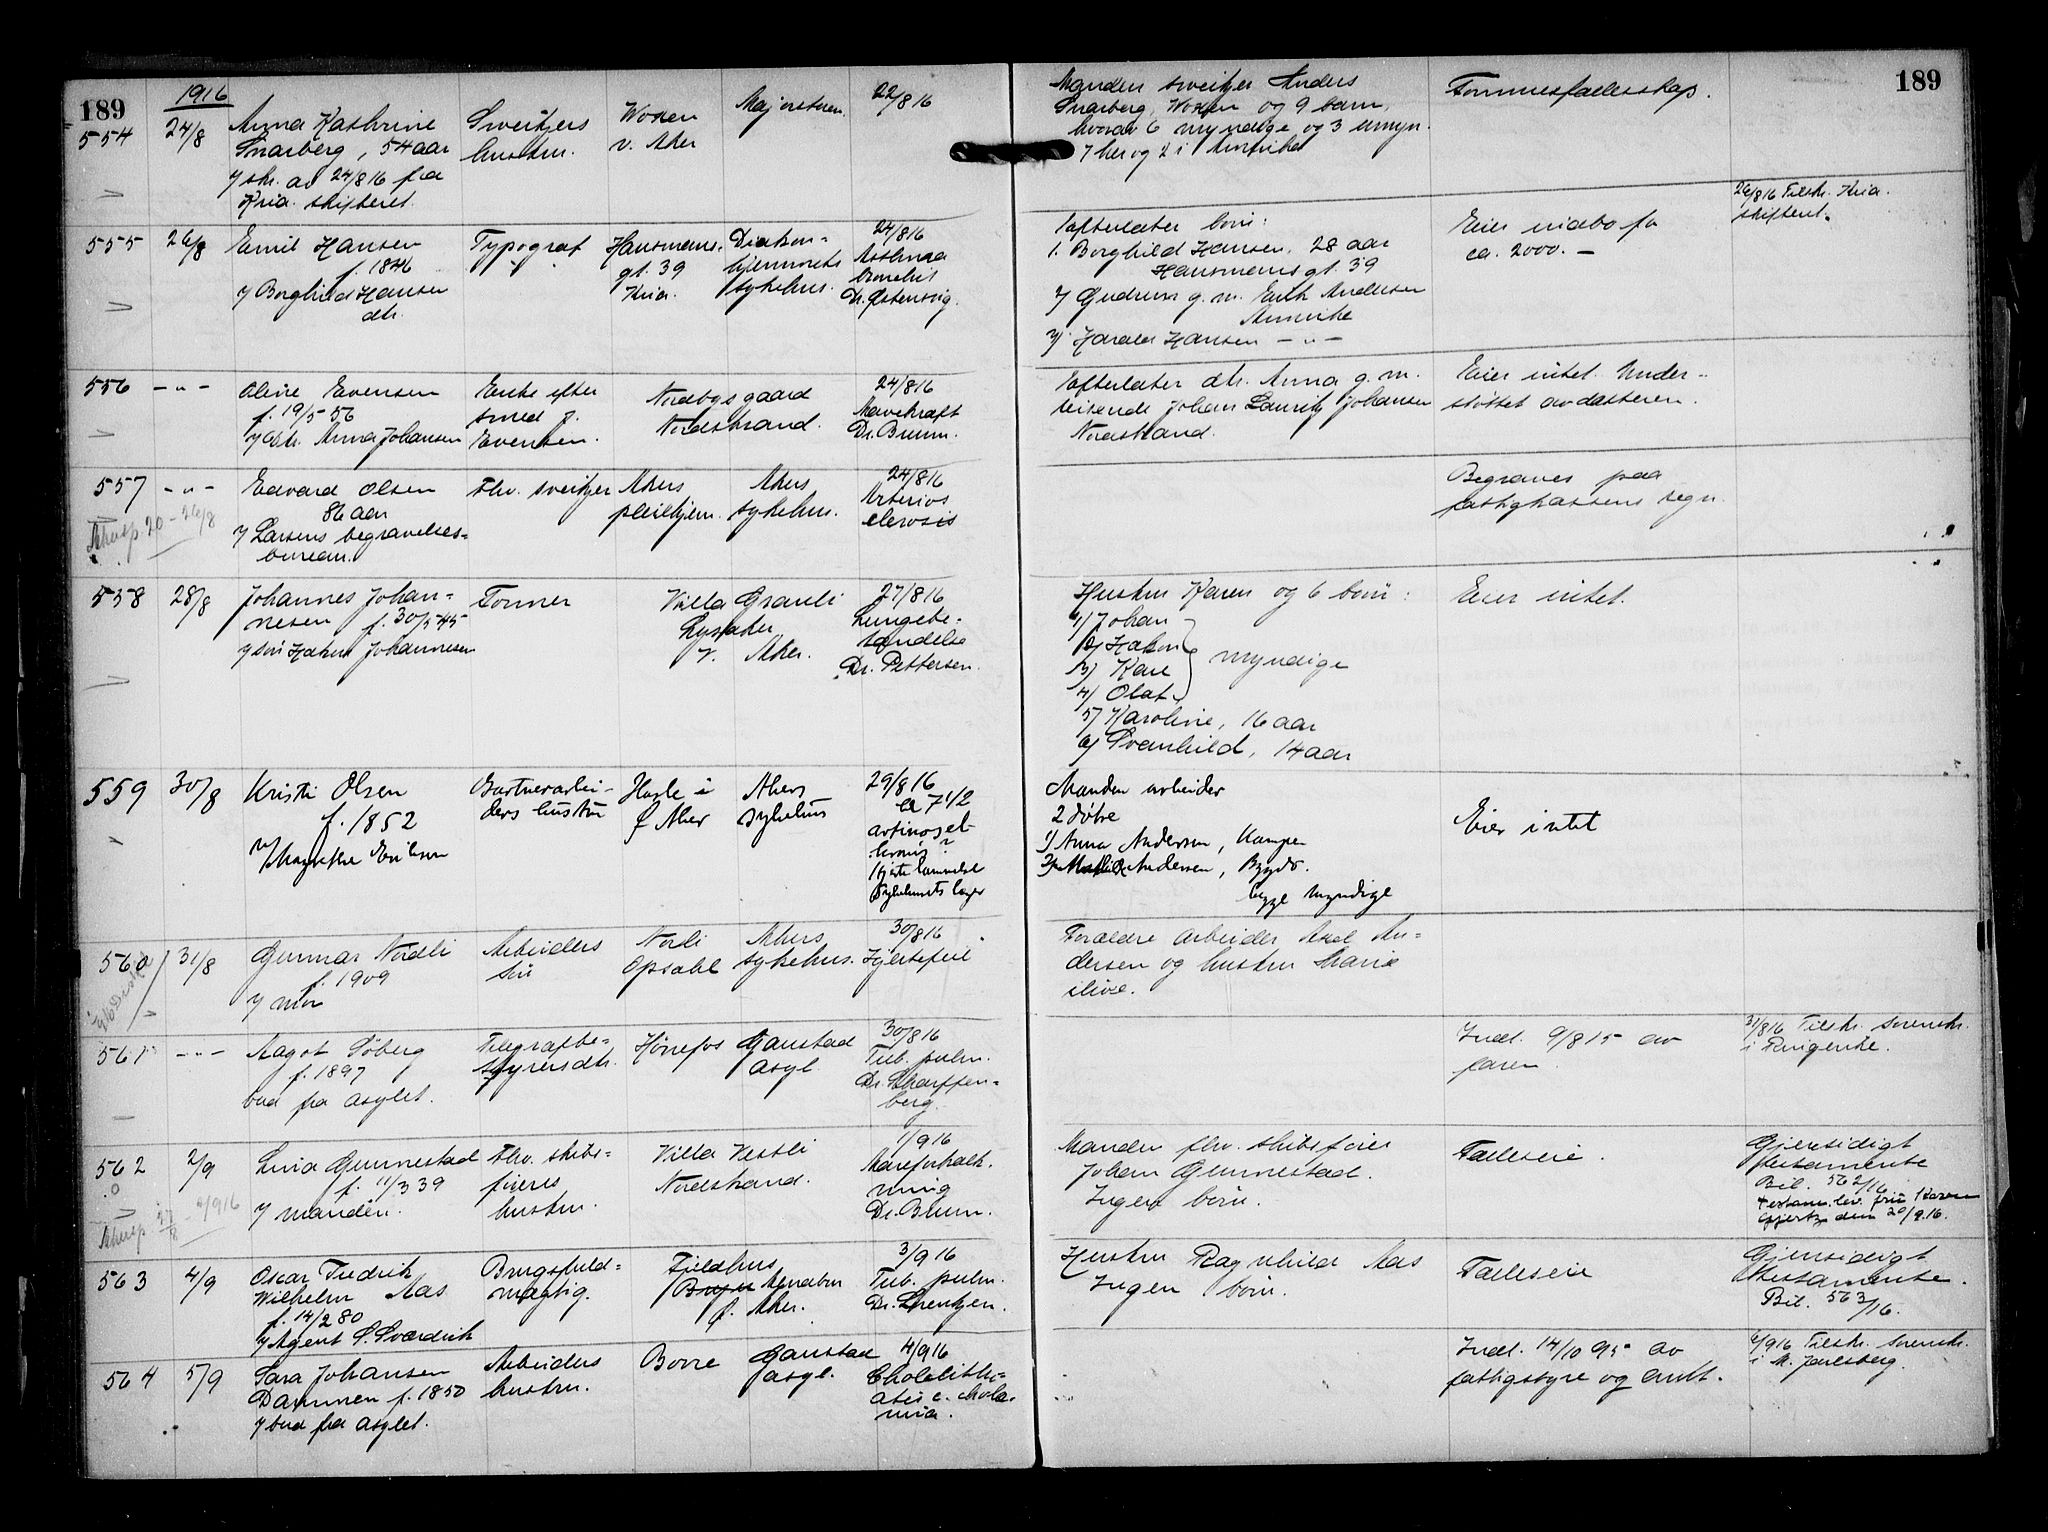 189
1916
189
554
24/8
Anna Kathrine
Snarberg, 54 aar
v/ skr. av 24/8 16 fra
Kria. skifteret.
Sveitzers
hustru.
Voxen
v. Aker
Majorstuen
22/8 16
Manden sveitzer Anders
Snarberg, Voxen og 9 barn,
hvorav 6 myndige og 3 umyn.
7 her og 2 i Amerika
Formuesfællesskap.
26/8 16 Tilskr. Kria.
skifteret.
555
26/8
Emil Hansen
f. 1846
v/ Borghild Hansen
dtr.
Typograf
Hausmanns-
gt. 39
Kria.
Diakon-
hjemmets
sykehus.
24/8 16
Asthma
bronchis
Dr. Østensvig.
Efterlater børn:
1. Borghild Hansen, 28 aar
Hausmanns gt. 39
2/ Gudrun g. m. Erik Andersen
Amerika
3/ Harald Hansen - " -
Eier indbo for
ca. 2000. -
556
- " -
Oline Evensen
f. 19/5 56
v/ dtr. Anna Johansen
Enke efter
smed J.
Evensen.
Nordbygaard
Nordstrand.
24/8 16
Mavekraft
Dr. Bruun.
Efterlater dtr. Anna g. m.
reisende Johan Lauritz Johansen
Nordstrand.
Eier intet. Under-
støttet av datteren.
557
- " -
Akersp. 20 - 26/8
Edvard Olsen
86 aar
v/ Larsens begravelses-
bureau.
Fhv. sveitzer
Akers
pleiehjem.
Akers
sykehus.
24/8 16
Arterios
clerosis
Begraves paa
fattigkassens regn.
558
28/8
Johannes Johan-
nesen f. 30/5 45
v/ søn Hakon Johannesen
Former
Villa Granli
Lysaker
v. Aker.
27/8 16
Lungebe-
tændelse
Dr. Pettersen.
Hustru Karen og 6 børn:
1/ Johan
2/ Hakon
3/ Kare
4/ Olaf
myndige
5/ Karoline, 16 aar
6/ Svanhild, 14 aar
Eier intet.
559
30/8
Kristi Olsen
f. 1852
v/ Margrethe Eriksen
Gartnerarbei-
ders hustru
Hasle i
Ø Aker
Akers
sykehus
29/8 16
kl 7 1/2
Hjertelammelse
Sykehusets læge
Manden arbeider
2 døtre
1) Anna Andersen, Kampen
2) Andersen, Bygdø.
begge myndige
Eier intet
560
31/8
Gunnar Nordli
f. 1909
v/ mor
Arbeiders
søn
Nordli
Opsahl
Akers
sykehus.
30/8 16
Hjertefeil
Forældre arbeider Axel An-
dersen og hustru Marie
ilive.
561
- " -
Aagot Søberg
f. 1897
bud fra asylet.
Telegrafbe-
styrers dtr.
Hønefos
Gaustad
asyl.
30/8 16
Tub. pulm.
Dr. Scharffen-
berg.
Indl. 9/8 15 av
faren.
31/8 16 Tilskr. sorenskr.
i Ringerike.
562
2/9
Akersp. 27/8 - 4/9 16
Lina Gunnestad
f. 11/3 39
v/ manden.
Fhv. skibs-
føreres
hustru.
Villa Vestli
Nordstrand.
1/9 16
Aareforkalk-
ning
Dr. Bruun.
Manden fhv. skibsfører
Johan Gunnestad.
Ingen børn.
Fælleseie.
Gjensidigt
testamente
Bil. 562/16
testam. lev. frk Karen
Gjertz den 20/9.16.
563
4/9
Oscar Fredrik
Wilhelm Aas
f. 14/2 80
v/ Agent S. Sværdvik
Brugsfuld-
mægtig.
Fjeldhus
Ø. Aker.
3/9 16
Tub. pulm.
Dr. Lorentzen.
Hustru Ragnhild Aas
Ingen børn.
Fælleseie
Gjensidigt
testamente.
Bil. 563/16.
564
5/9
Sara Johansen
Dammen f. 1850
v/ bud fra asylet.
Arbeiders
hustru.
Borre
Gaustad
asyl.
4/9 16
Cholelithi-
asis c. cholæ-
mia.
Indl. 14/10 95 av
fattigstyre og amt.
6/9 16 Tilskr. sorenskr.
i N. Jarlsberg.